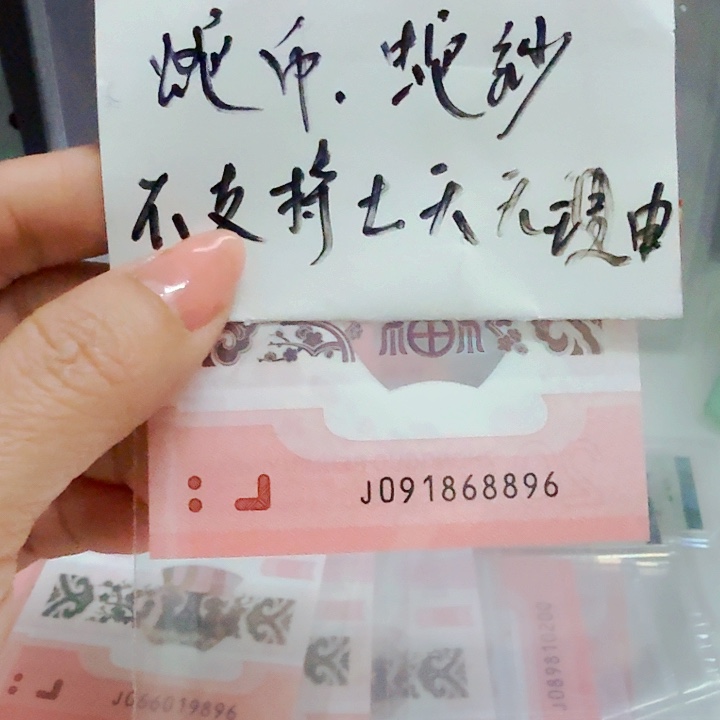 蛇币.蛇钞
不支持七天无理由
J091868896
J066019896